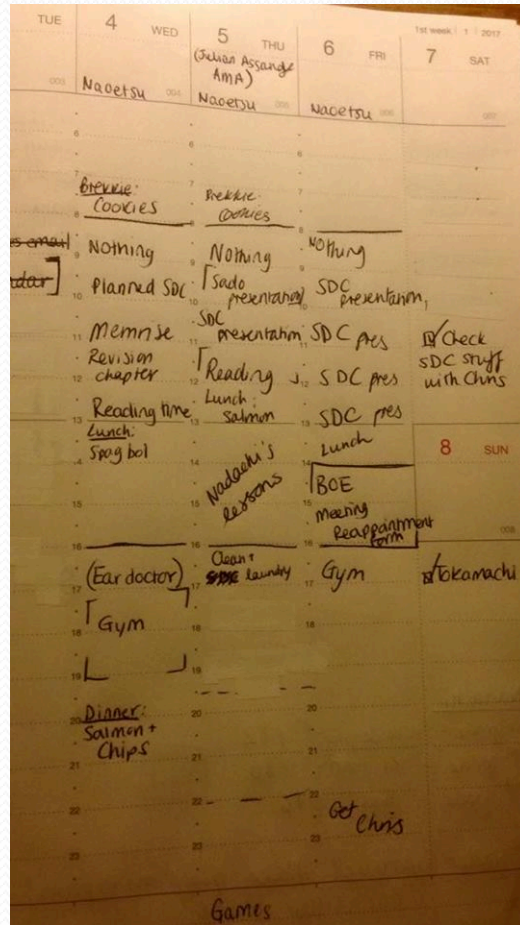 TUE
4 WED
5 THU
6 FRI
1st week 1 2017
7 SAT
(Julian Assange
AMA)
Naoetsu
Naoetsu
Naoetsu
Brekkie:
Cookies
Nothing
Planned SDC
Memrise
Revision
chapter
Reading time
Lunch:
Spag bol
(Ear doctor)
Gym
Dinner:
Salmon +
Chips
Brekkie:
Cookies
Nothing
Sado
presentation
SDC
presentation
Reading
Lunch:
Salmon
lessons
Clean +
laundry
Nothing
SDC
presentation,
SDC pres
SDC pres
SDC pres
Lunch
BOE
Meeting
Reappointment
form
Gym
Get Chris
Check
SDC stuff
with Chris
8 SUN
Tokamachi
Games